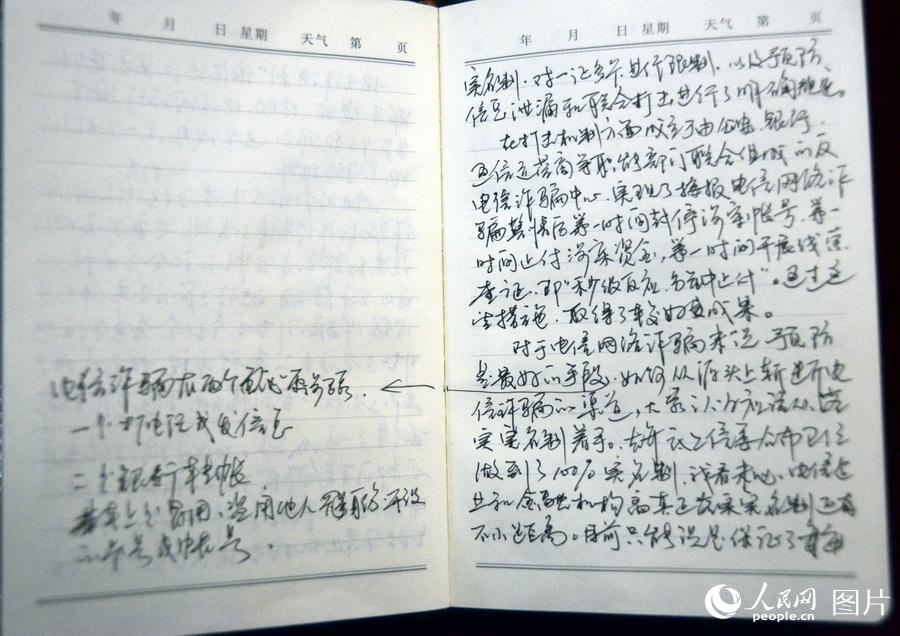 年 月 日 星期 天气 第 页
电信诈骗有两个
一个打电话或发信息
二个银行转帐
冒用、盗用他人
年 月 日 星期 天气 第 页
实名制,对一证多卡进行限制,以及预防
信息泄漏和联合打击进行了明确规定。
在打击机制方面成立了由公安、银行、
通信运营商等职能部门联合组成的反
电信诈骗中心,实现了接报电信网络诈
骗警情后第一时间封停涉案帐号,第一
时间止付涉案资金,第一时间开展线索
查证,即“秒级反应,动中止付”。通过这
些措施,取得了较好的成果。
对于电信网络诈骗来说,预防
是最好的手段,如何从源头上斩断电
信诈骗的渠道,大家认为应该从落
实实名制着手。去年 工信 公布已经
做到了100%实名制,我看未必。电信企
业和金融机构离真正落实实名制还有
不小距离。目前只能说是保证了
人民网 图片
people.cn